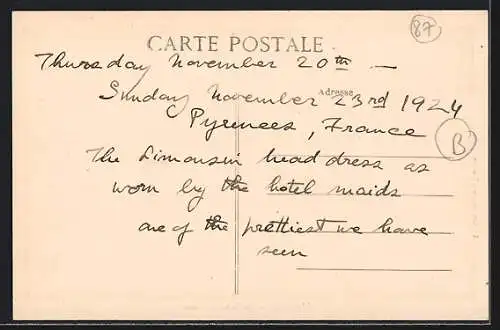 87
CARTE POSTALE
Thursday November 20th —
Adresse
Sunday November 23rd 1924
Pyrenees, France
B
The Limousin head dress as
worn by the hotel maids
one of the prettiest we have
seen